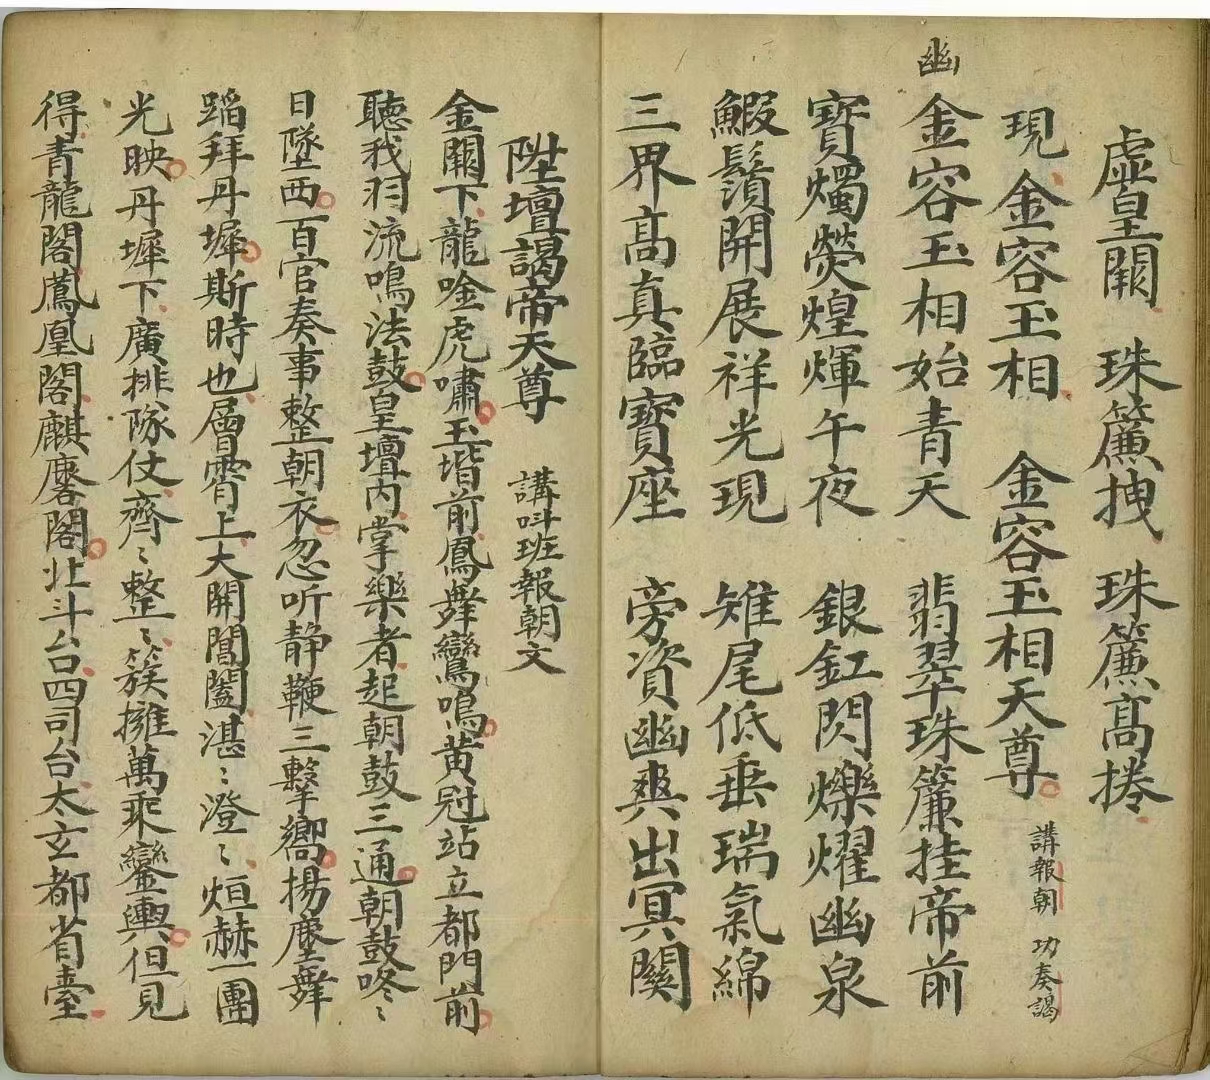 虛皇闕 珠簾拽 珠簾高捲
現金容玉相 金容玉相天尊 講報朝 功奏謁
幽
金容玉相始青天 翡翠珠簾挂帝前
寶燭熒煌輝午夜 銀釭閃爍燿幽泉
鰕鬚開展祥光現 雉尾低垂瑞氣綿
三界高真臨寶座 旁資幽爽出冥關
陞壇謁帝天尊 講呌班報朝文
金闕下龍唫虎嘯玉堦前鳳舞鸞鳴黃冠站立都門前
聽我羽流鳴法鼓皇壇內掌樂者起朝鼓三通朝鼓咚〻
日墜西百官奏事整朝衣忽听静鞭三擊嚮揚塵舞
蹈拜丹墀斯時也層霄上大開閶闔湛〻澄〻烜赫一團
光映丹墀下廣排隊仗齊〻整〻簇擁萬乘鑾輿但見
得青龍閣鳳凰閣麒麐閣北斗台四司台太玄都省臺